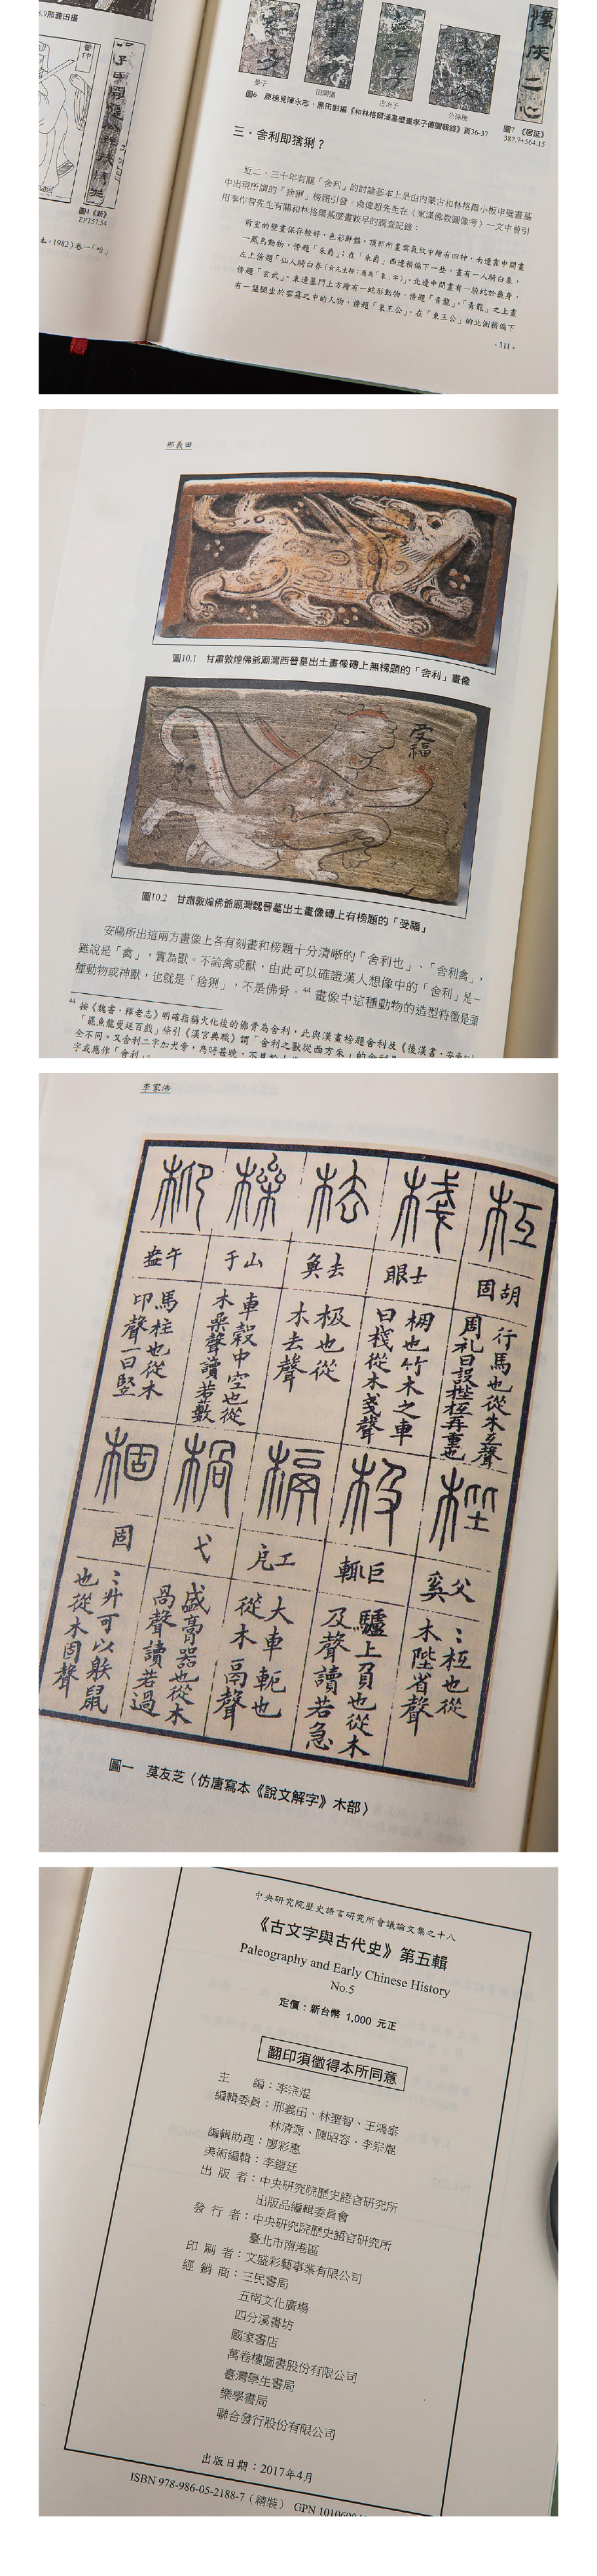 .9邢義田攝
管仲
圖4《新》
EPT57.54
本，1982）卷一「哈」
晏子
田開疆
古冶子
公孫捷
圖6 原榜見陳永志、黑田彰編《和林格爾漢墓壁畫孝子傳圖輯錄》頁36-37
懷灰二心
圖7 《居延》
387.7+564.15
三．舍利即猞猁？
近二、三十年有關「舍利」的討論基本上是由內蒙古和林格爾小板申壁畫墓
中出現所謂的「猞猁」榜題引發。俞偉超先生在〈東漢佛教圖像考〉一文中曾引
用李作智先生有關和林格爾墓壁畫較早的調查記錄：
前室的壁畫保存較好，色彩鮮豔，頂部所畫雲氣紋中繪有四神，南邊當中間畫
一鳳鳥動物，傍題「朱爵」；在「朱爵」西邊稍偏下一些，畫有一人騎白象，
左上傍題「仙人騎白
傍題「玄武」。東邊墓門上方繪有一蛇形動物，傍題「青龍」。「青龍」之上畫
有一盤腿坐於雲霧之中的人物，傍題「東王公」。在「東王公」的北側稍偏下
- 311 -
邢義田
圖10.1 甘肅敦煌佛爺廟灣西晉墓出土畫像磚上無榜題的「舍利」畫像
受福
圖10.2 甘肅敦煌佛爺廟灣魏晉墓出土畫像磚上有榜題的「受福」
安陽所出這兩方畫像上各有刻畫和榜題十分清晰的「舍利也」、「舍利禽」，
雖說是「禽」，實為獸。不論禽或獸，由此可以確證漢人想像中的「舍利」是一
種動物或神獸，也就是「猞猁」，不是佛骨。44 畫像中這種動物的造型特徵是頭
44 按《魏書．釋老志》明確指稱火化後的佛骨為舍利，此與漢畫榜題舍利及《後漢書．安帝紀》
「罷魚龍曼延百戲」條引《漢官典職》謂「舍利之獸從西方來」的舍利
全不同。又舍利二字加犬旁，為時甚晚，不見於
字或應作「舍利」。
李家浩
枑 棧 㭕 橾 枊
胡固
士眼
去魚
山于
午盎
行馬也從木互聲
周礼曰設梐枑再重也
棚也竹木之車
曰棧從木戔聲
极也從
木去聲
車轂中空也從
木喿聲讀若藪
馬柱也從木
卬聲一曰堅
梐 极 槅 楇 棝
父奚
巨輒
工戹
弋
固
〻枑也從
木陛省聲
驢上負也從木
及聲讀若急
大車軛也
從木鬲聲
盛膏器也從木
咼聲讀若過
〻斗可以躲鼠
也從木固聲
圖一 莫友芝〈仿唐寫本《說文解字》木部〉
中央研究院歷史語言研究所會議論文集之十八
《古文字與古代史》第五輯
Paleography and Early Chinese History
No.5
定價：新台幣 1,000 元正
翻印須徵得本所同意
主 編：李宗焜
編輯委員：邢義田、林聖智、王鴻泰
林清源、陳昭容、李宗焜
編輯助理：廖彩惠
美術編輯：李鎧廷
出 版 者：中央研究院歷史語言研究所
出版品編輯委員會
發 行 者：中央研究院歷史語言研究所
臺北市南港區
印 刷 者：文盛彩藝事業有限公司
經 銷 商：三民書局
五南文化廣場
四分溪書坊
國家書店
萬卷樓圖書股份有限公司
臺灣學生書局
樂學書局
聯合發行股份有限公司
出版日期：2017年4月
ISBN 978-986-05-2188-7（精裝） GPN 101060